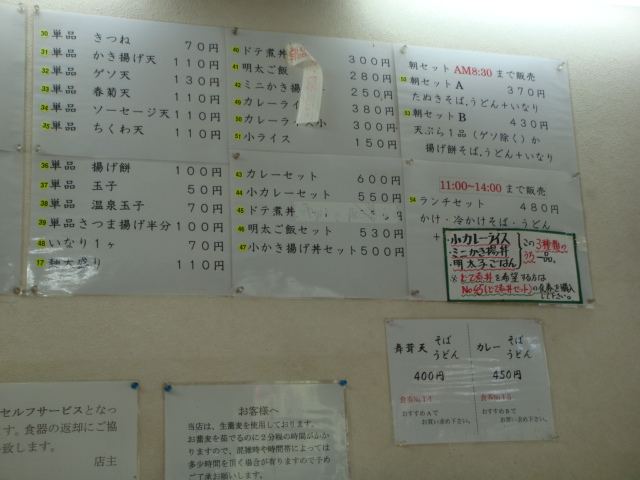 30 単品 きつね 70円
31 単品 かき揚げ天 110円
32 単品 ゲソ天 130円
33 単品 春菊天 110円
34 単品 ソーセージ天 110円
35 単品 ちくわ天 110円
36 単品 揚げ餅 100円
37 単品 玉子 50円
38 単品 温泉玉子 70円
39 単品 さつま揚げ半分 100円
48 いなり1ヶ 70円
17 盛り 110円
40 ドテ煮丼 300円
41 明太ご飯 280円
42 ミニかき揚 250円
49 カレーライス 380円
50 カレーラ 小 300円
51 小ライス 150円
43 カレーセット 600円
44 小カレーセット 550円
45 ドテ煮丼 550円
46 明太ご飯セット 530円
47 小かき揚げ丼セット 500円
朝セット AM8:30 まで販売
52 朝セットA 370円
たぬきそば,うどん+いなり
53 朝セットB 430円
天ぷら1品(ゲソ除く)か
揚げ餅そば,うどん+いなり
11:00~14:00 まで販売
54 ランチセット 480円
かけ・冷かけそば・うどん
+
・小カレーライス
・ミニかき揚丼
・明太子ごはん
この3種類の
内一品。
※どて煮丼を希望する方は
No45(どて煮丼セット)の食券を購入
して下さい。
舞茸天 そば うどん
400円
食券No14
おすすめAで
お買い求め下さい。
カレー そば うどん
450円
食券No15
おすすめBで
お買い求め下さい。
セルフサービスとなっ
ます。食器の返却にご協
致します。
店主
お客様へ
当店は、生蕎麦を使用しております。
お蕎麦を茹でるのに2分線の時間がかか
りますので、混雑時や時間帯によっては
多少時間を頂く場合が有りますので予め
ご了承お願いします。